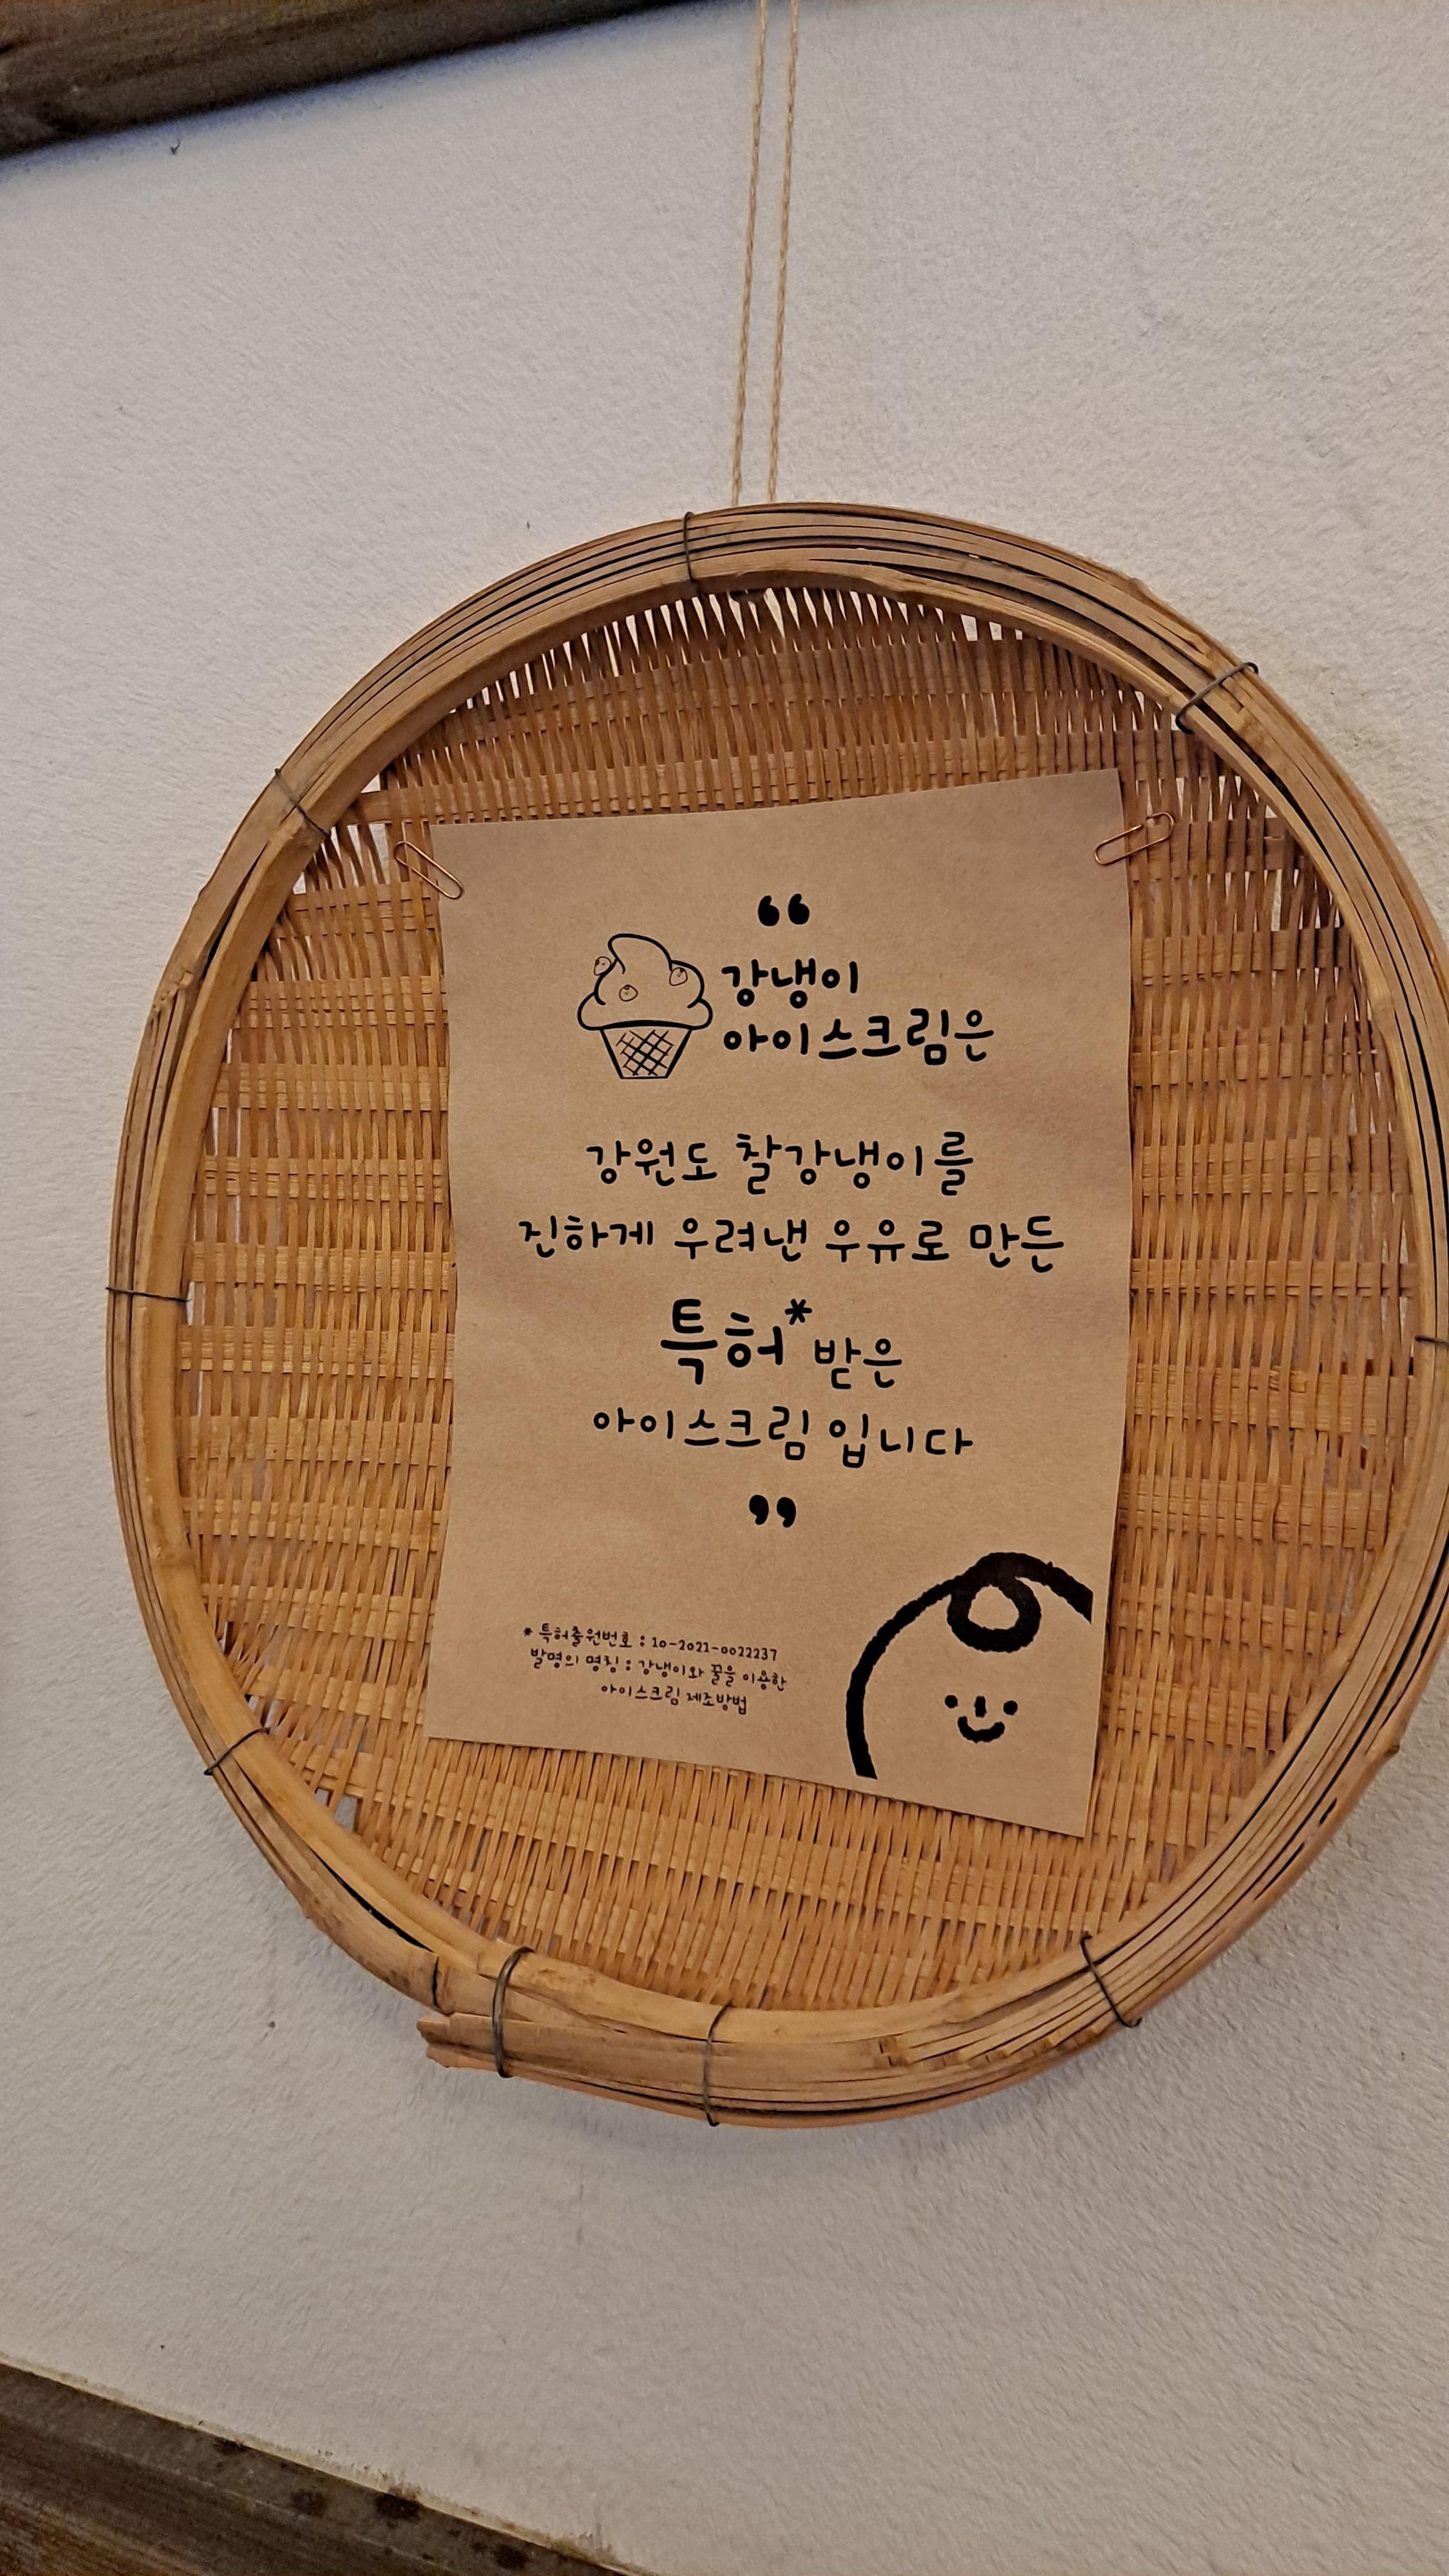 “
강냉이
아이스크림은
강원도 찰강냉이를
진하게 우려낸 우유로 만든
특허* 받은
아이스크림 입니다
”
* 특허출원번호 : 10-2021-0022237
발명의 명칭 : 강냉이와 꿀을 이용한
아이스크림 제조방법